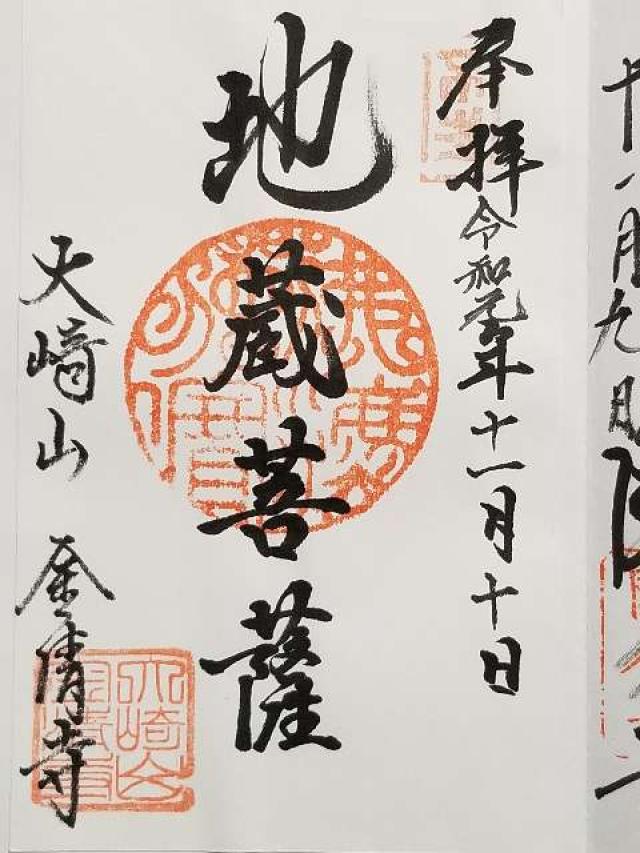 十一月九日
奉拝 令和元年十一月十日
地蔵菩薩
大崎山 金清寺